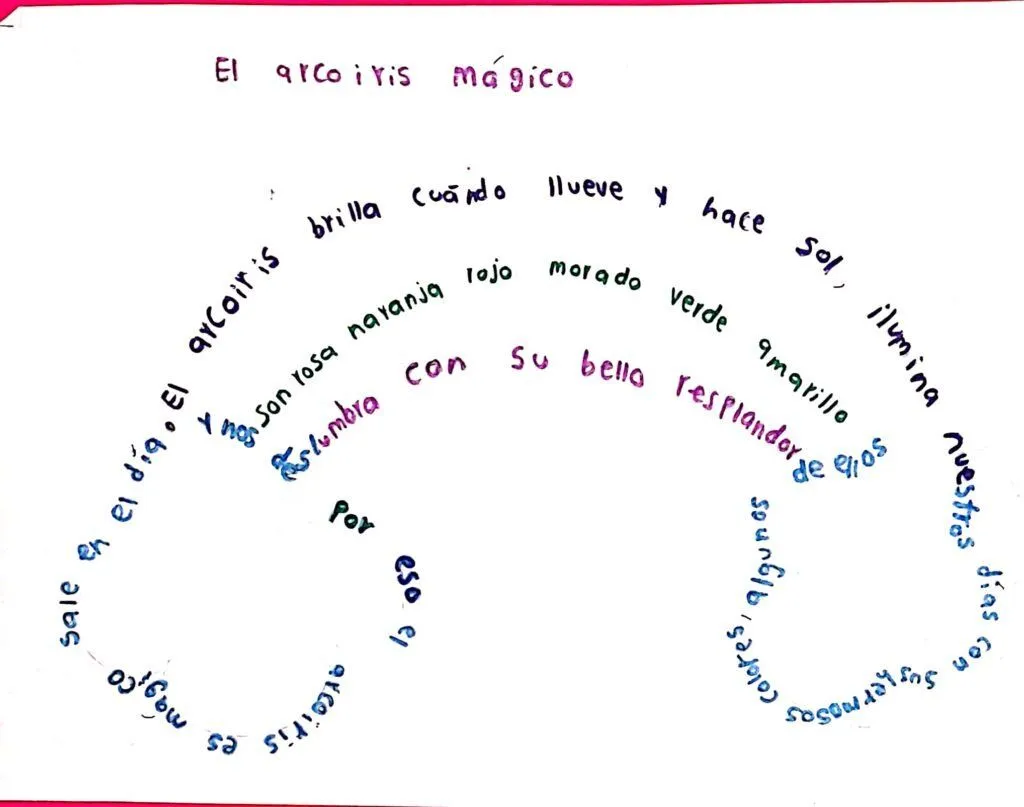 El arcoiris mágico
sale en el día. El arcoiris brilla cuándo llueve y hace sol, ilumina nuestros días con sus hermosos colores, algunos de ellos
son rosa naranja rojo morado verde amarillo
y nos deslumbra con su bello resplandor
Por eso el arcoiris es mágico